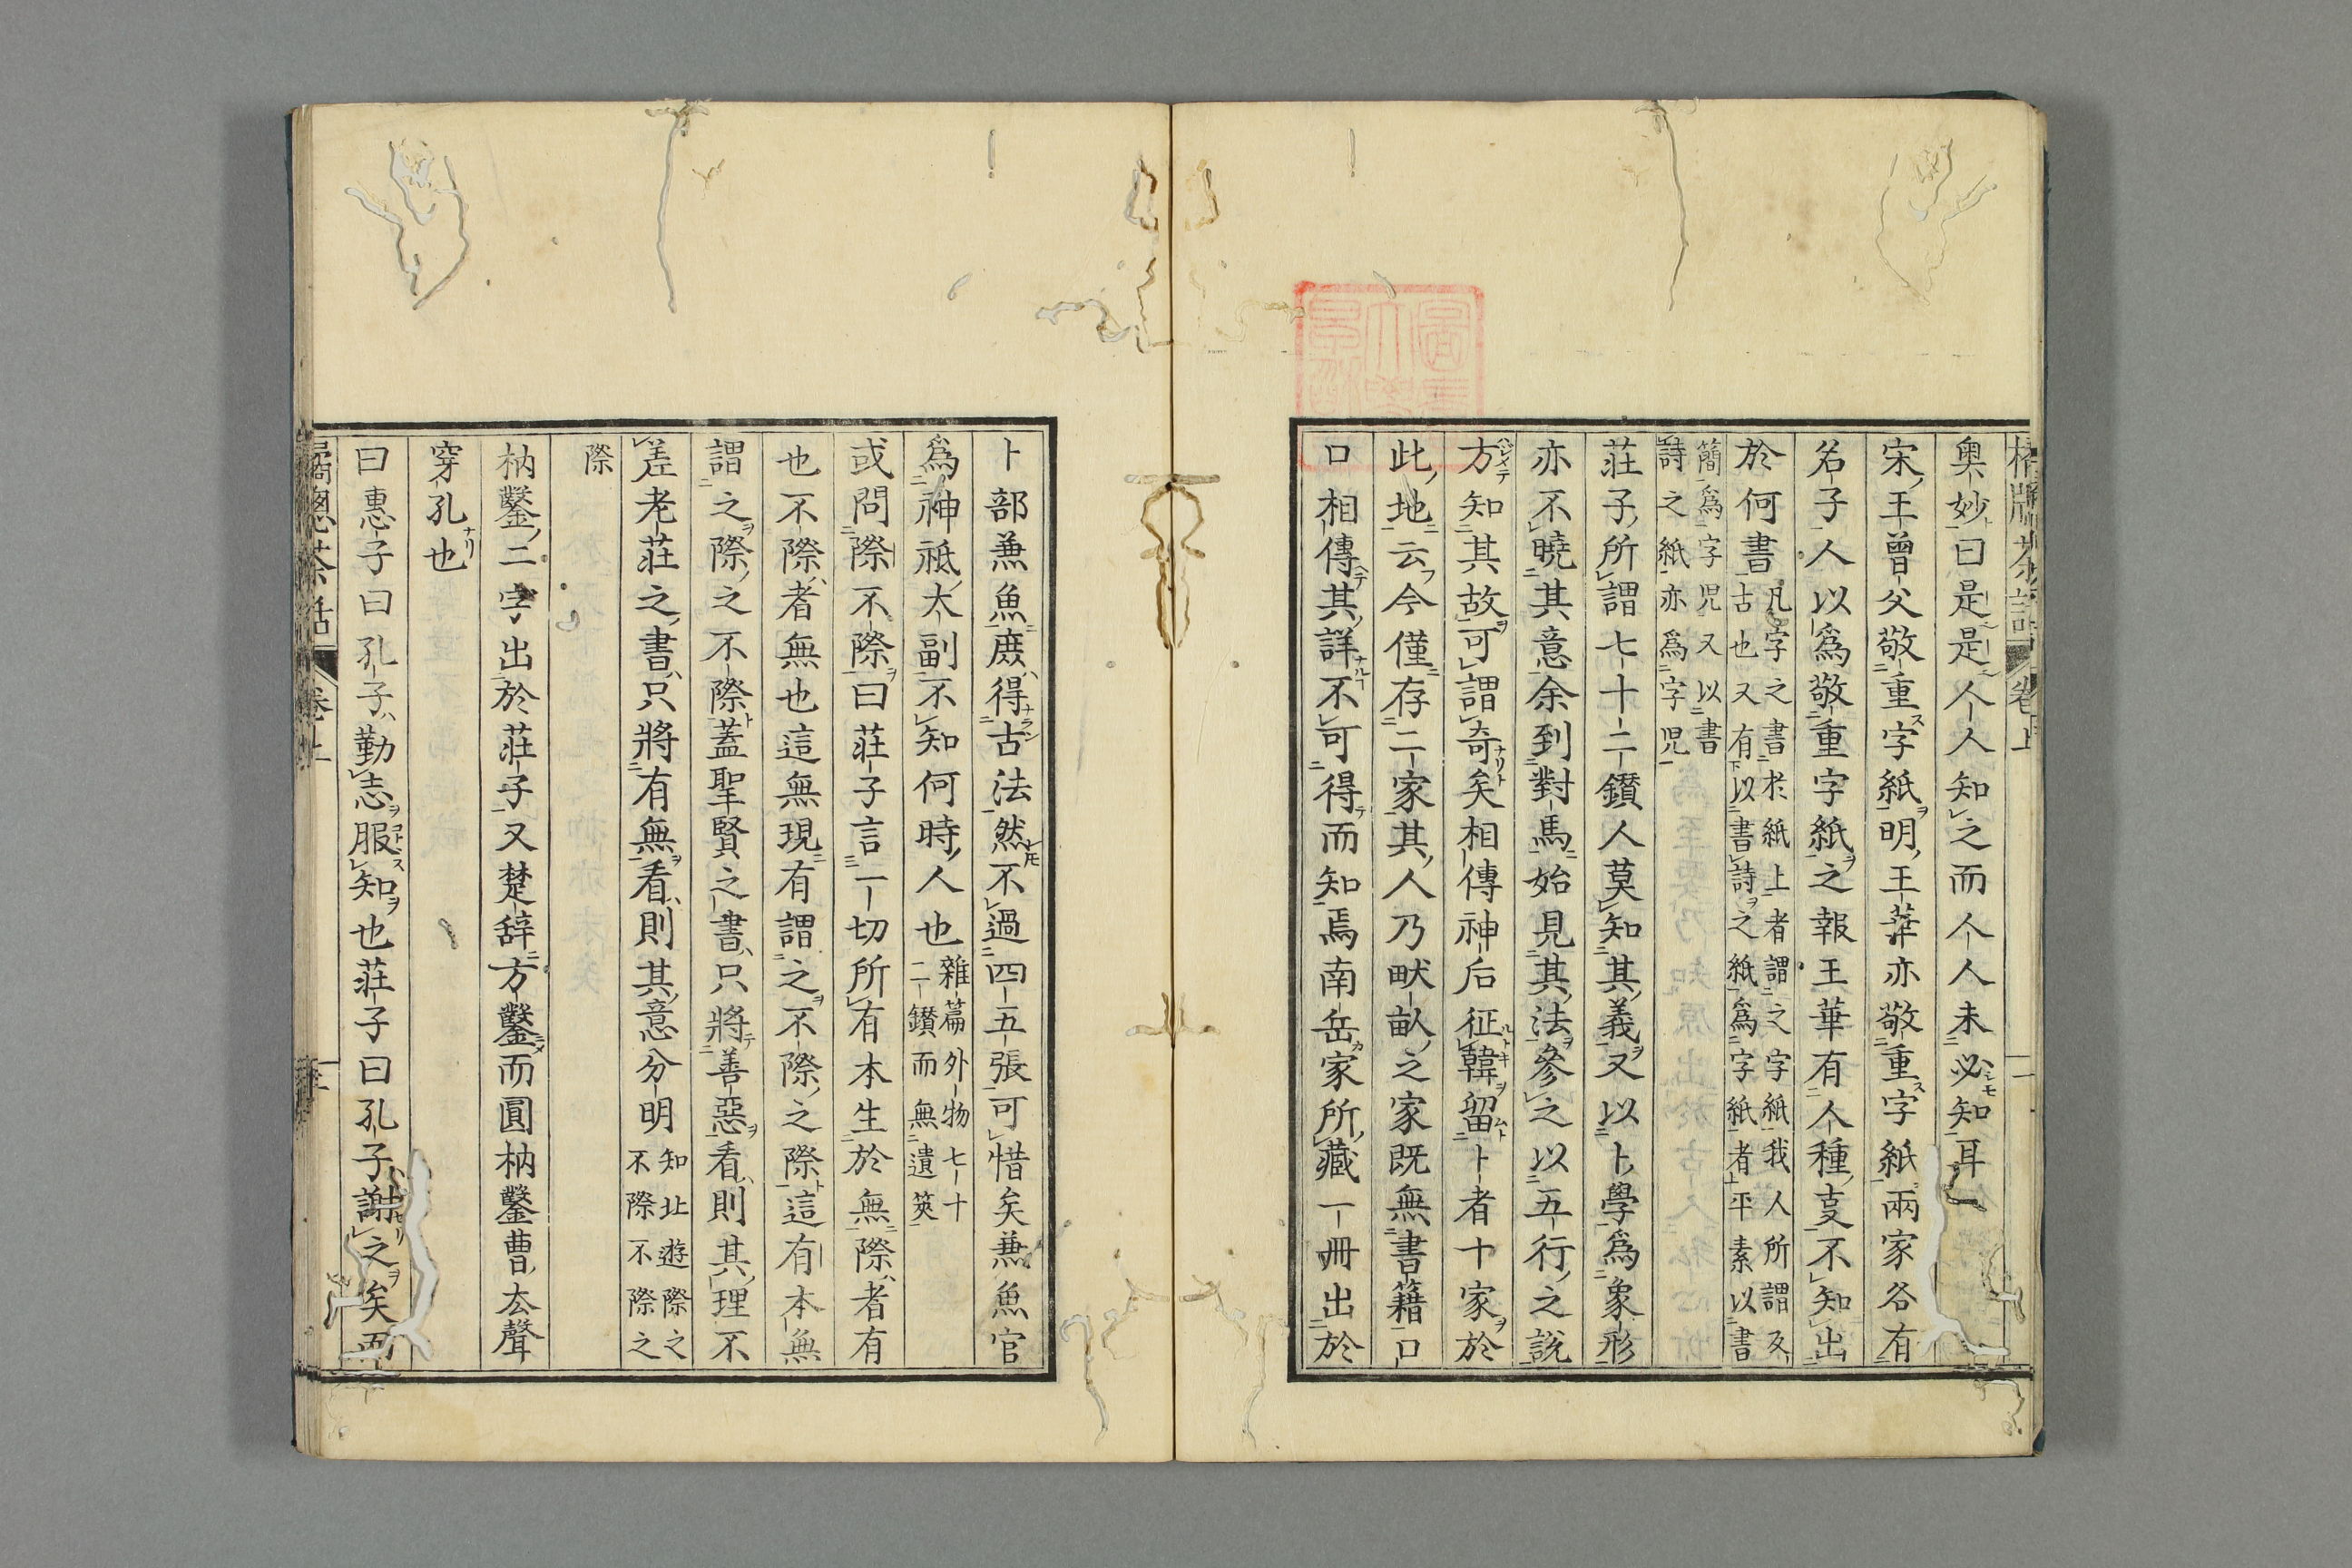 奥妙曰是是人人知之而人人未必知耳
宋王曾父敬重字紙明王華亦敬重字紙兩家各有
名子人以爲敬重字紙之報王華有人種支不知出
於何書凡字之書於紙上者謂之字紙我人所謂及
古也又有以書詩之紙爲字紙者平素以書
簡爲字児又以書
詩之紙亦爲字児
莊子所謂七十二鑚人莫知其義又以卜學爲象形
亦不曉其意余到對馬始見其法參之以五行之說
方知其故可謂奇矣相傳神后征韓留卜者十家於
此地云今僅存二家其人乃畎畝之家既無書籍口
口相傳其詳不可得而知焉南岳家所藏一冊出於
卜部兼魚庶得古法然不過四五張可惜矣兼魚官
爲神祗太副不知何時人也雜篇外物七十
二鑚而無遺筴
或問際不際曰莊子言一切所有本生於無際者有
也不際者無也這無現有謂之不際之際這有本無
謂之際之不際蓋聖賢之書只將善惡看則其理不
差老莊之書只將有無看則其意分明知北遊際之
不際不際之
際
枘鑿二字出於莊子又楚辞方鑿而圓枘鑿曹去聲
穿孔也
曰惠子曰孔子勤志服知也莊子曰孔子謝之矣而